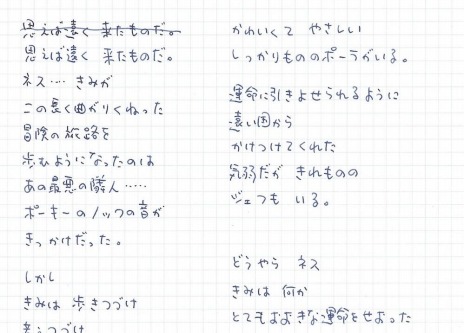 思えば遠く 来たものだ。
思えば遠く 来たものだ。
ネス…… きみが
この長く曲がりくねった
冒険の旅路を
歩むようになったのは
あの最悪の隣人……
ポーキーのノックの音が
きっかけだった。
しかし
きみは 歩きつづけ
つづけ
かわいくて やさしい
しっかりもののポーラがいる。
運命に引きよせられるように
遠い国から
かけつけてくれた
気弱だが きれものの
ジェフも いる。
どうやら ネス
きみは 何か
とてもおおきな運命をせおった